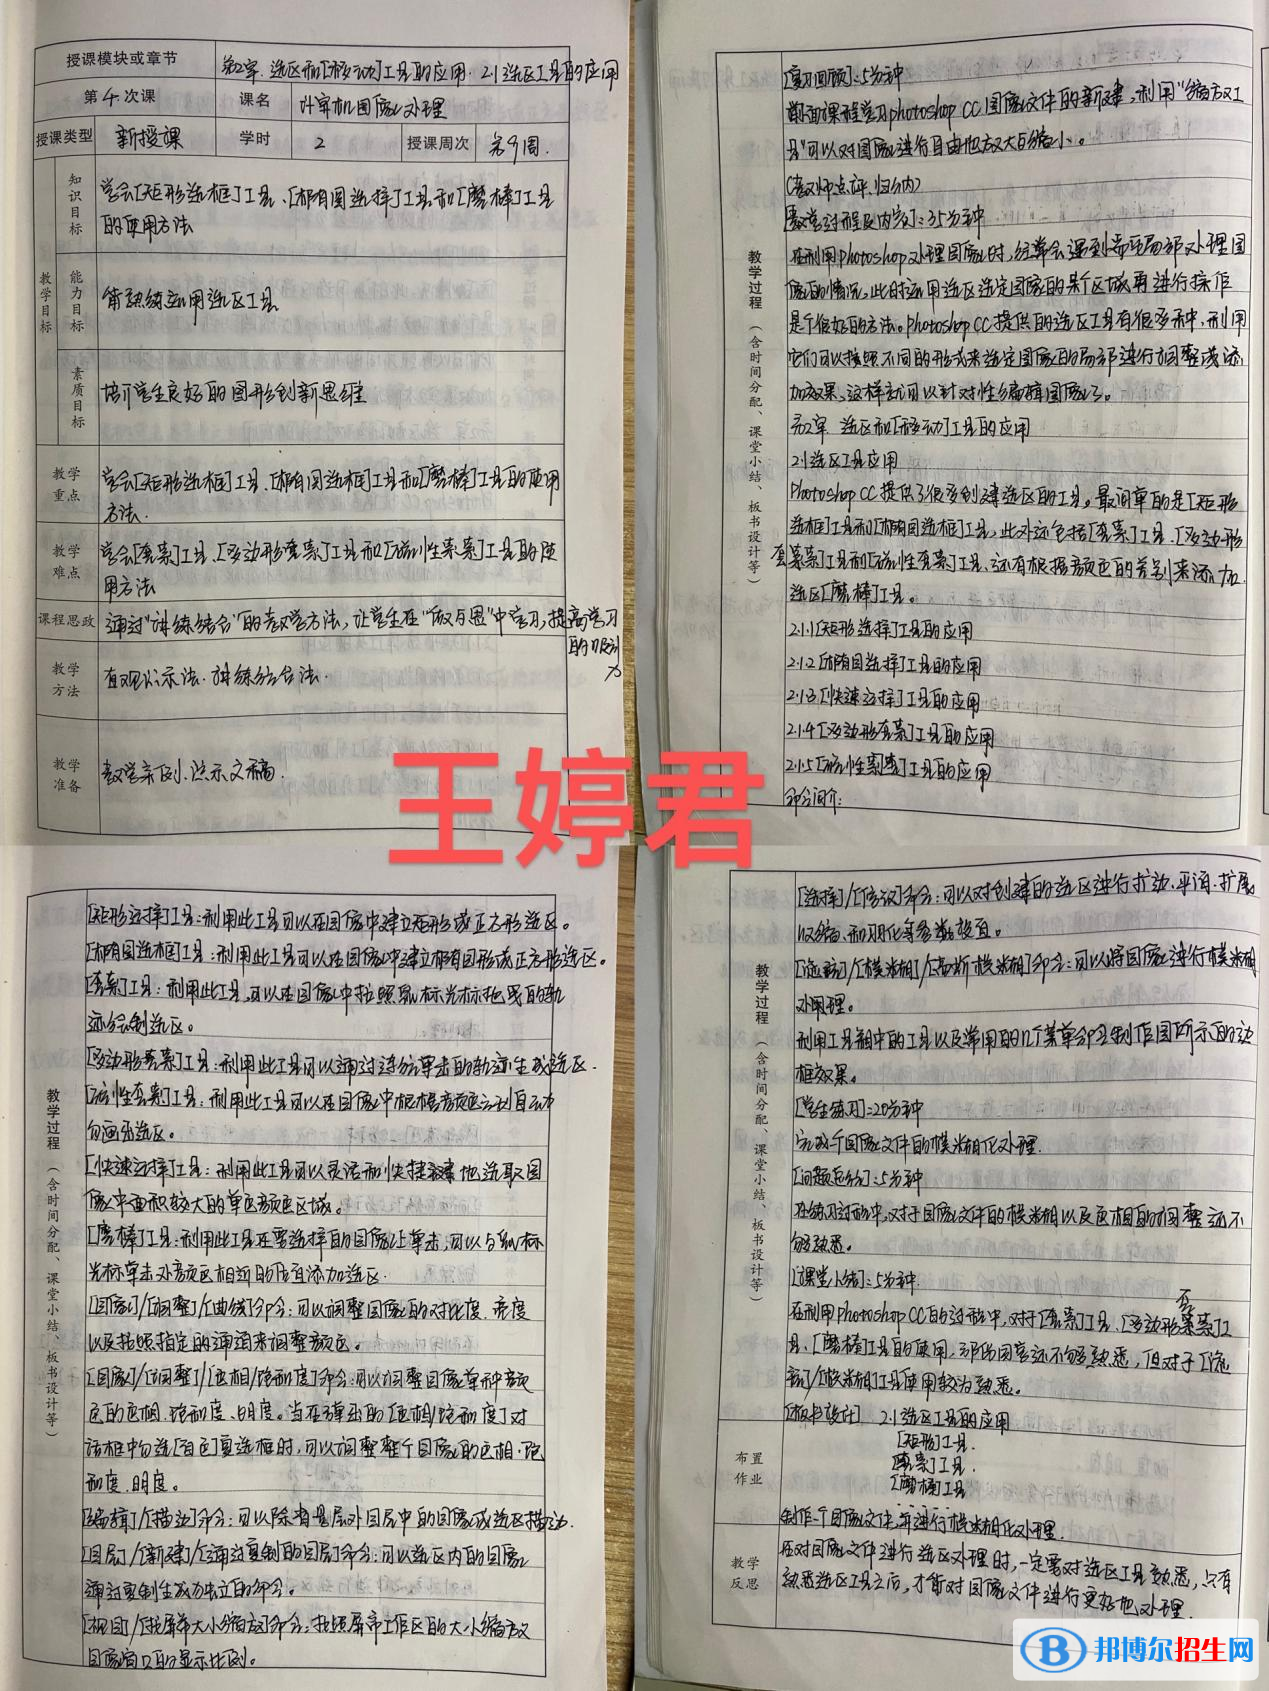 授课模块或章节 第2章.选区和[移动]工具的应用.2.1选区工具的应用
第4次课 课名 计算机图像处理
授课类型 新授课 学时 2 授课周次 第9周.
教学目标
知识目标
学会[矩形选框]工具、[椭圆选择]工具和[魔棒]工具
的使用方法
能力目标
能熟练运用选区工具
素质目标
培训学生良好的图形创新思维
教学重点
学会[矩形选框]工具、[椭圆选框]工具和[魔棒]工具的使用
方法.
教学难点
学会[套索]工具、[多边形套索]工具和[磁性套索]工具的使
用方法
课程思政
通过“讲练结合”的教学方法，让学生在“做与思”中学习，提高学习
的吸引
力
教学方法
直观演示法.讲练结合法.
教学准备
教学案例.演示文稿.
教学过程（含时间分配、课堂小结、板书设计等）
[复习回顾]:5分钟
前面课程学习photoshop CC图像文件的新建，利用“缩放工
具”可以对图像进行自由地放大与缩小。
(教师点评、归纳)
[教学过程及内容]:35分钟
在利用photoshop处理图像时，经常会遇到需要局部处理图
像的情况，此时运用选区选定图像的某个区域再进行操作
是个很好的方法。photoshop CC提供的选区工具有很多种，利用
它们可以按照不同的形式来选定图像的局部进行调整或添
加效果，这样就可以针对性编辑图像了。
第2章.选区和[移动]工具的应用
2.1选区工具应用
Photoshop CC提供了很多创建选区的工具。最简单的是[矩形
选框]工具和[椭圆选框]工具，此外还包括[套索]工具、[多边形
套索]工具和[磁性套索]工具、还有根据颜色的差别来添加
选区[魔棒]工具。
2.1.1[矩形选择]工具的应用
2.1.2[椭圆选择]工具的应用
2.1.3[快速选择]工具的应用
2.1.4[多边形套索]工具的应用
2.1.5[磁性套索]工具的应用
命令简介:
王婷君
教学过程（含时间分配、课堂小结、板书设计等）
[矩形选择]工具:利用此工具可以在图像中建立矩形或正方形选区。
[椭圆选框]工具:利用此工具可以在图像中建立椭圆形或正方形选区。
[套索]工具:利用此工具，可以在图像中按照鼠标光标拖曳的轨
迹绘制选区。
[多边形套索]工具:利用此工具可以通过连续单击的轨迹生成选区.
[磁性套索]工具:利用此工具可以在图像中根据颜色差别自动
勾画出选区。
[快速选择]工具:利用此工具可以灵活和快捷地选取图
像中面积较大的单色颜色区域。
[魔棒]工具:利用此工具在要选择的图像上单击，可以与鼠标
光标单击处颜色相近的位置添加选区.
[图像]/[调整]/[曲线]命令:可以调整图像的对比度、亮度
以及按照指定的通道来调整颜色。
[图像]/[调整]/[色相/饱和度]命令:可以调整图像单种颜
色的色相、饱和度、明度。当在弹出的[色相/饱和度]对
话框中勾选[着色]复选框时，可以调整整个图像的色相、饱
和度、明度。
[编辑]/[描边]命令:可以除背景层外图层中的图像或选区描边.
[图层]/[新建]/[通过复制的图层]命令:可以选区内的图像
通过复制生成为独立的命令。
[视图]/[按屏幕大小缩放]命令:按照屏幕工作区的大小缩放
图像窗口的显示比例。
教学过程（含时间分配、课堂小结、板书设计等）
[选择]/[修改]命令:可以对创建的选区进行扩边、平滑、扩展、
收缩、和羽化等参数设置。
[滤镜]/[模糊]/[高斯模糊]命令:可以将图像进行模糊
处理。
利用工具箱中的工具以及常用的几个菜单命令制作图所示的边
框效果。
[学生练习]:20分钟
完成个图像文件的模糊化处理.
[问题总结]:5分钟
在练习过程中，对于图像文件的模糊以及色相的调整还不
够熟悉。
[课堂小结]:5分钟.
在利用Photoshop CC的过程中，对于[套索]工具、[多边形套索]工
具、[魔棒]工具的使用，部分同学还不够熟悉，但对于[滤
镜]/[模糊]工具使用较为熟悉。
[板书设计] 2.1选区工具的应用
[矩形]工具.
[套索]工具.
[魔棒]工具
......
布置作业
制作一个图像文件，并进行模糊化处理.
教学反思
在对图像文件进行选区处理时，一定要对选区工具熟悉，只有
熟悉选区工具之后，才能对图像文件进行更好地处理.
邦博尔招生网